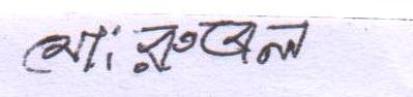 মোঃ রুবেল